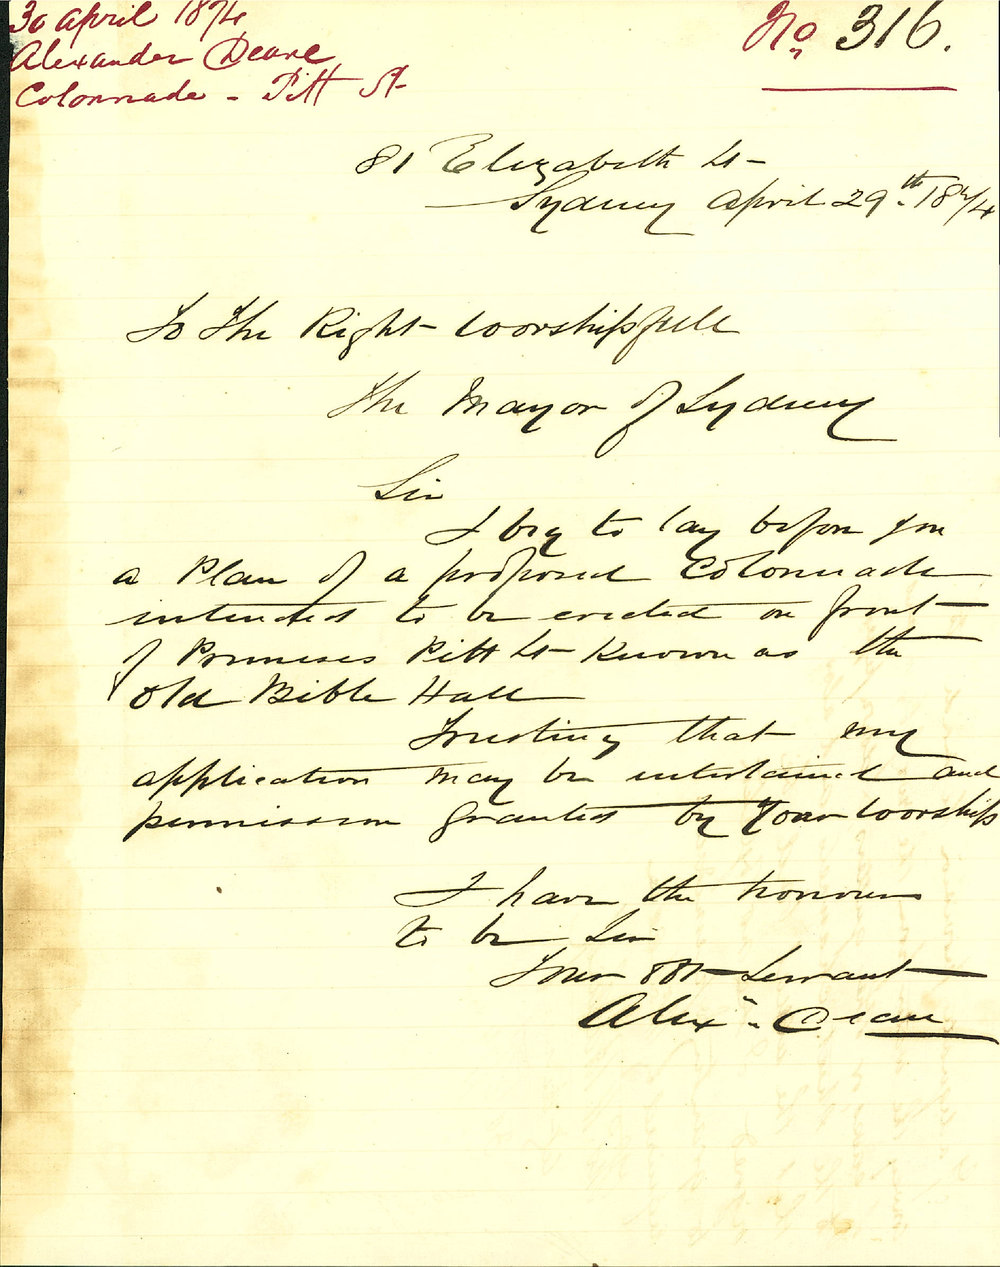 30 April 1874
Alexander Deane
Colonnade - Pitt St
No 316.
81 Elizabeth St
Sydney April 29th 1874
To The Right Worshipfull
The Mayor of Sydney
Sir
I beg to lay before you
a Plan of a proposed Colonnade
intended to be erected on front
of Premises Pitt St Known as the
Old Bible Hall
Trusting that my
application may be entertained and
permission granted by Your Worship
I have the honour
to be Sir
Your Obt Servant
Alex. Dean